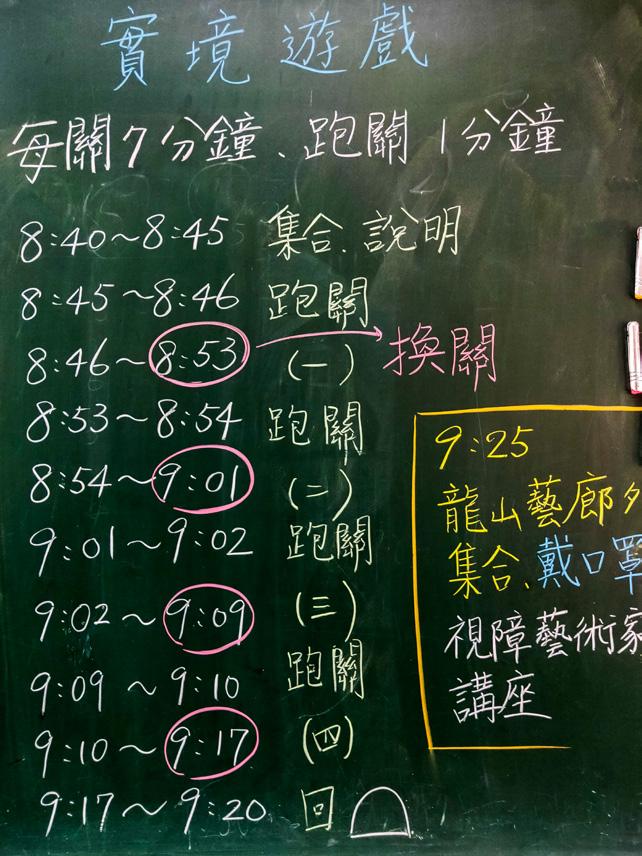 實境遊戲
每關7分鐘、跑關1分鐘
8:40~8:45 集合、說明
8:45~8:46 跑關
8:46~8:53 (一) 換關
8:53~8:54 跑關
8:54~9:01 (二)
9:01~9:02 跑關
9:02~9:09 (三)
9:09~9:10 跑關
9:10~9:17 (四)
9:17~9:20 回
9:25
龍山藝廊
集合、戴口罩
視障藝術家
講座